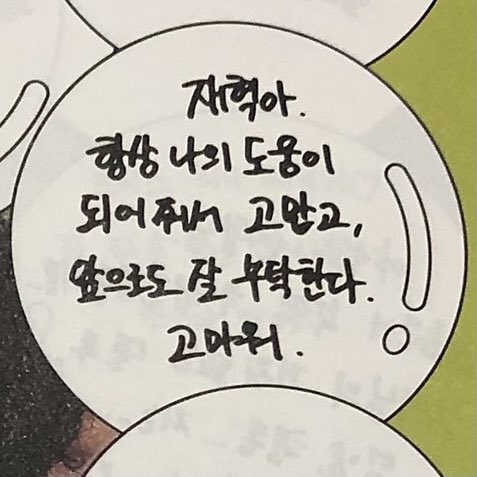 재혁아.
항상 나의 도움이
되어줘서 고맙고,
앞으로도 잘 부탁한다.
고마워.